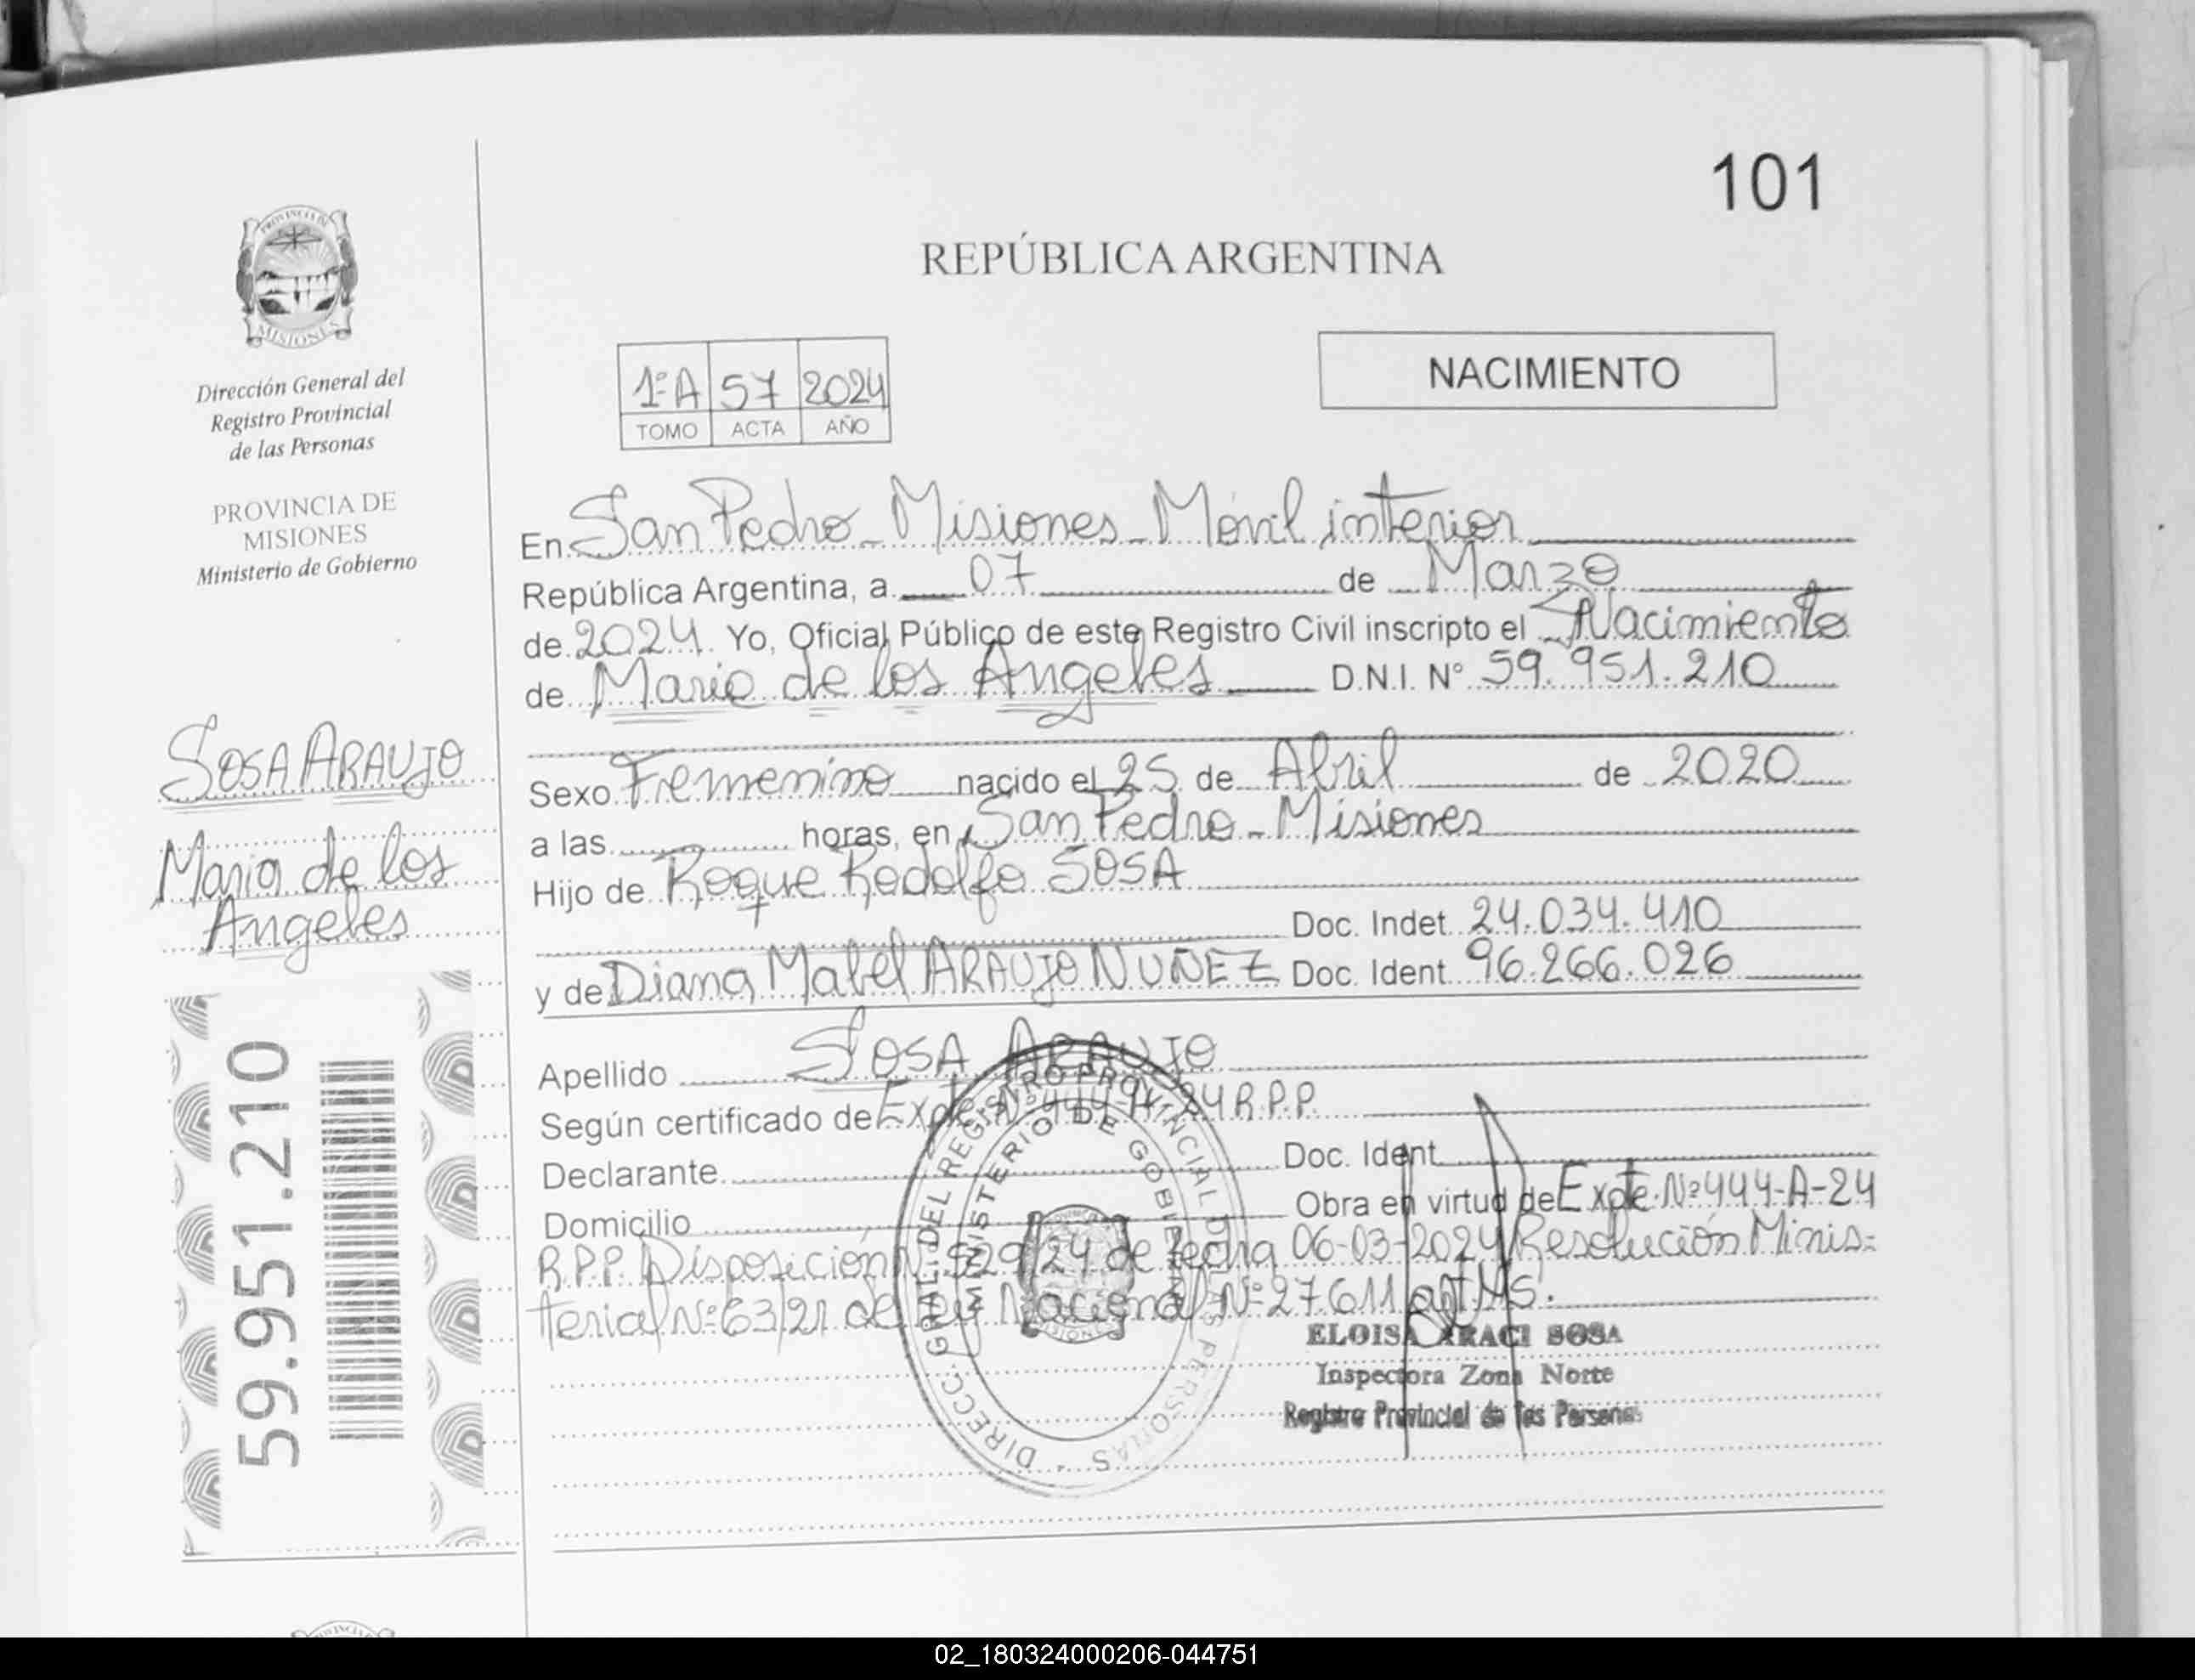 101
REPÚBLICA ARGENTINA
PROVINCIA DE
MISIONES
Dirección General del
Registro Provincial
de las Personas
PROVINCIA DE
MISIONES
Ministerio de Gobierno
SOSA ARAUJO
Maria de los
Angeles
59.951.210
1ºA 57 2024
TOMO ACTA AÑO
NACIMIENTO
En San Pedro - Misiones - Móvil interior
República Argentina, a 07 de Marzo
de 2024 Yo, Oficial Público de este Registro Civil inscripto el Nacimiento
de Maria de los Angeles D.N.I. Nº 59.951.210
Sexo Femenino nacido el 25 de Abril de 2020
a las horas, en San Pedro - Misiones
Hijo de Roque Rodolfo SOSA
Doc. Indet. 24.034.410
y de Diana Mabel ARAUJO NUÑEZ Doc. Ident. 96.266.026
Apellido SOSA ARAUJO
Según certificado de Expte. Nº 444-A-24 R.P.P.
Declarante Doc. Ident.
Domicilio Obra en virtud de Expte. Nº 444-A-24
R.P.P. Disposición Nº 529/24 de fecha 06-03-2024 Resolución Minis-
terial Nº 63/21 de Ley Nacional Nº 27611
DIRECC. GRAL. DEL REGISTRO PROVINCIAL DE LAS PERSONAS
MINISTERIO DE GOBIERNO
MISIONES
ELOISA ARACI SOSA
Inspectora Zona Norte
Registro Provincial de las Personas
02_180324000206-044751